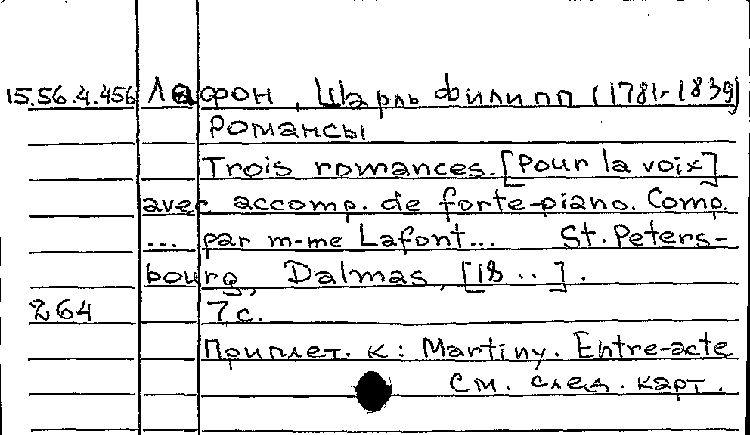 15.56.4.456 Лафон, Шарль Филипп (1781-1839)
Романсы
Trois romances. [Pour la voix]
avec accomp. de forte-piano. Comp.
... par m-me Lafont... St. Peters-
bourg, Dalmas, [18 ..].
264 7 с.
Приплет. к: Martiny. Entre-acte
См. след. карт.